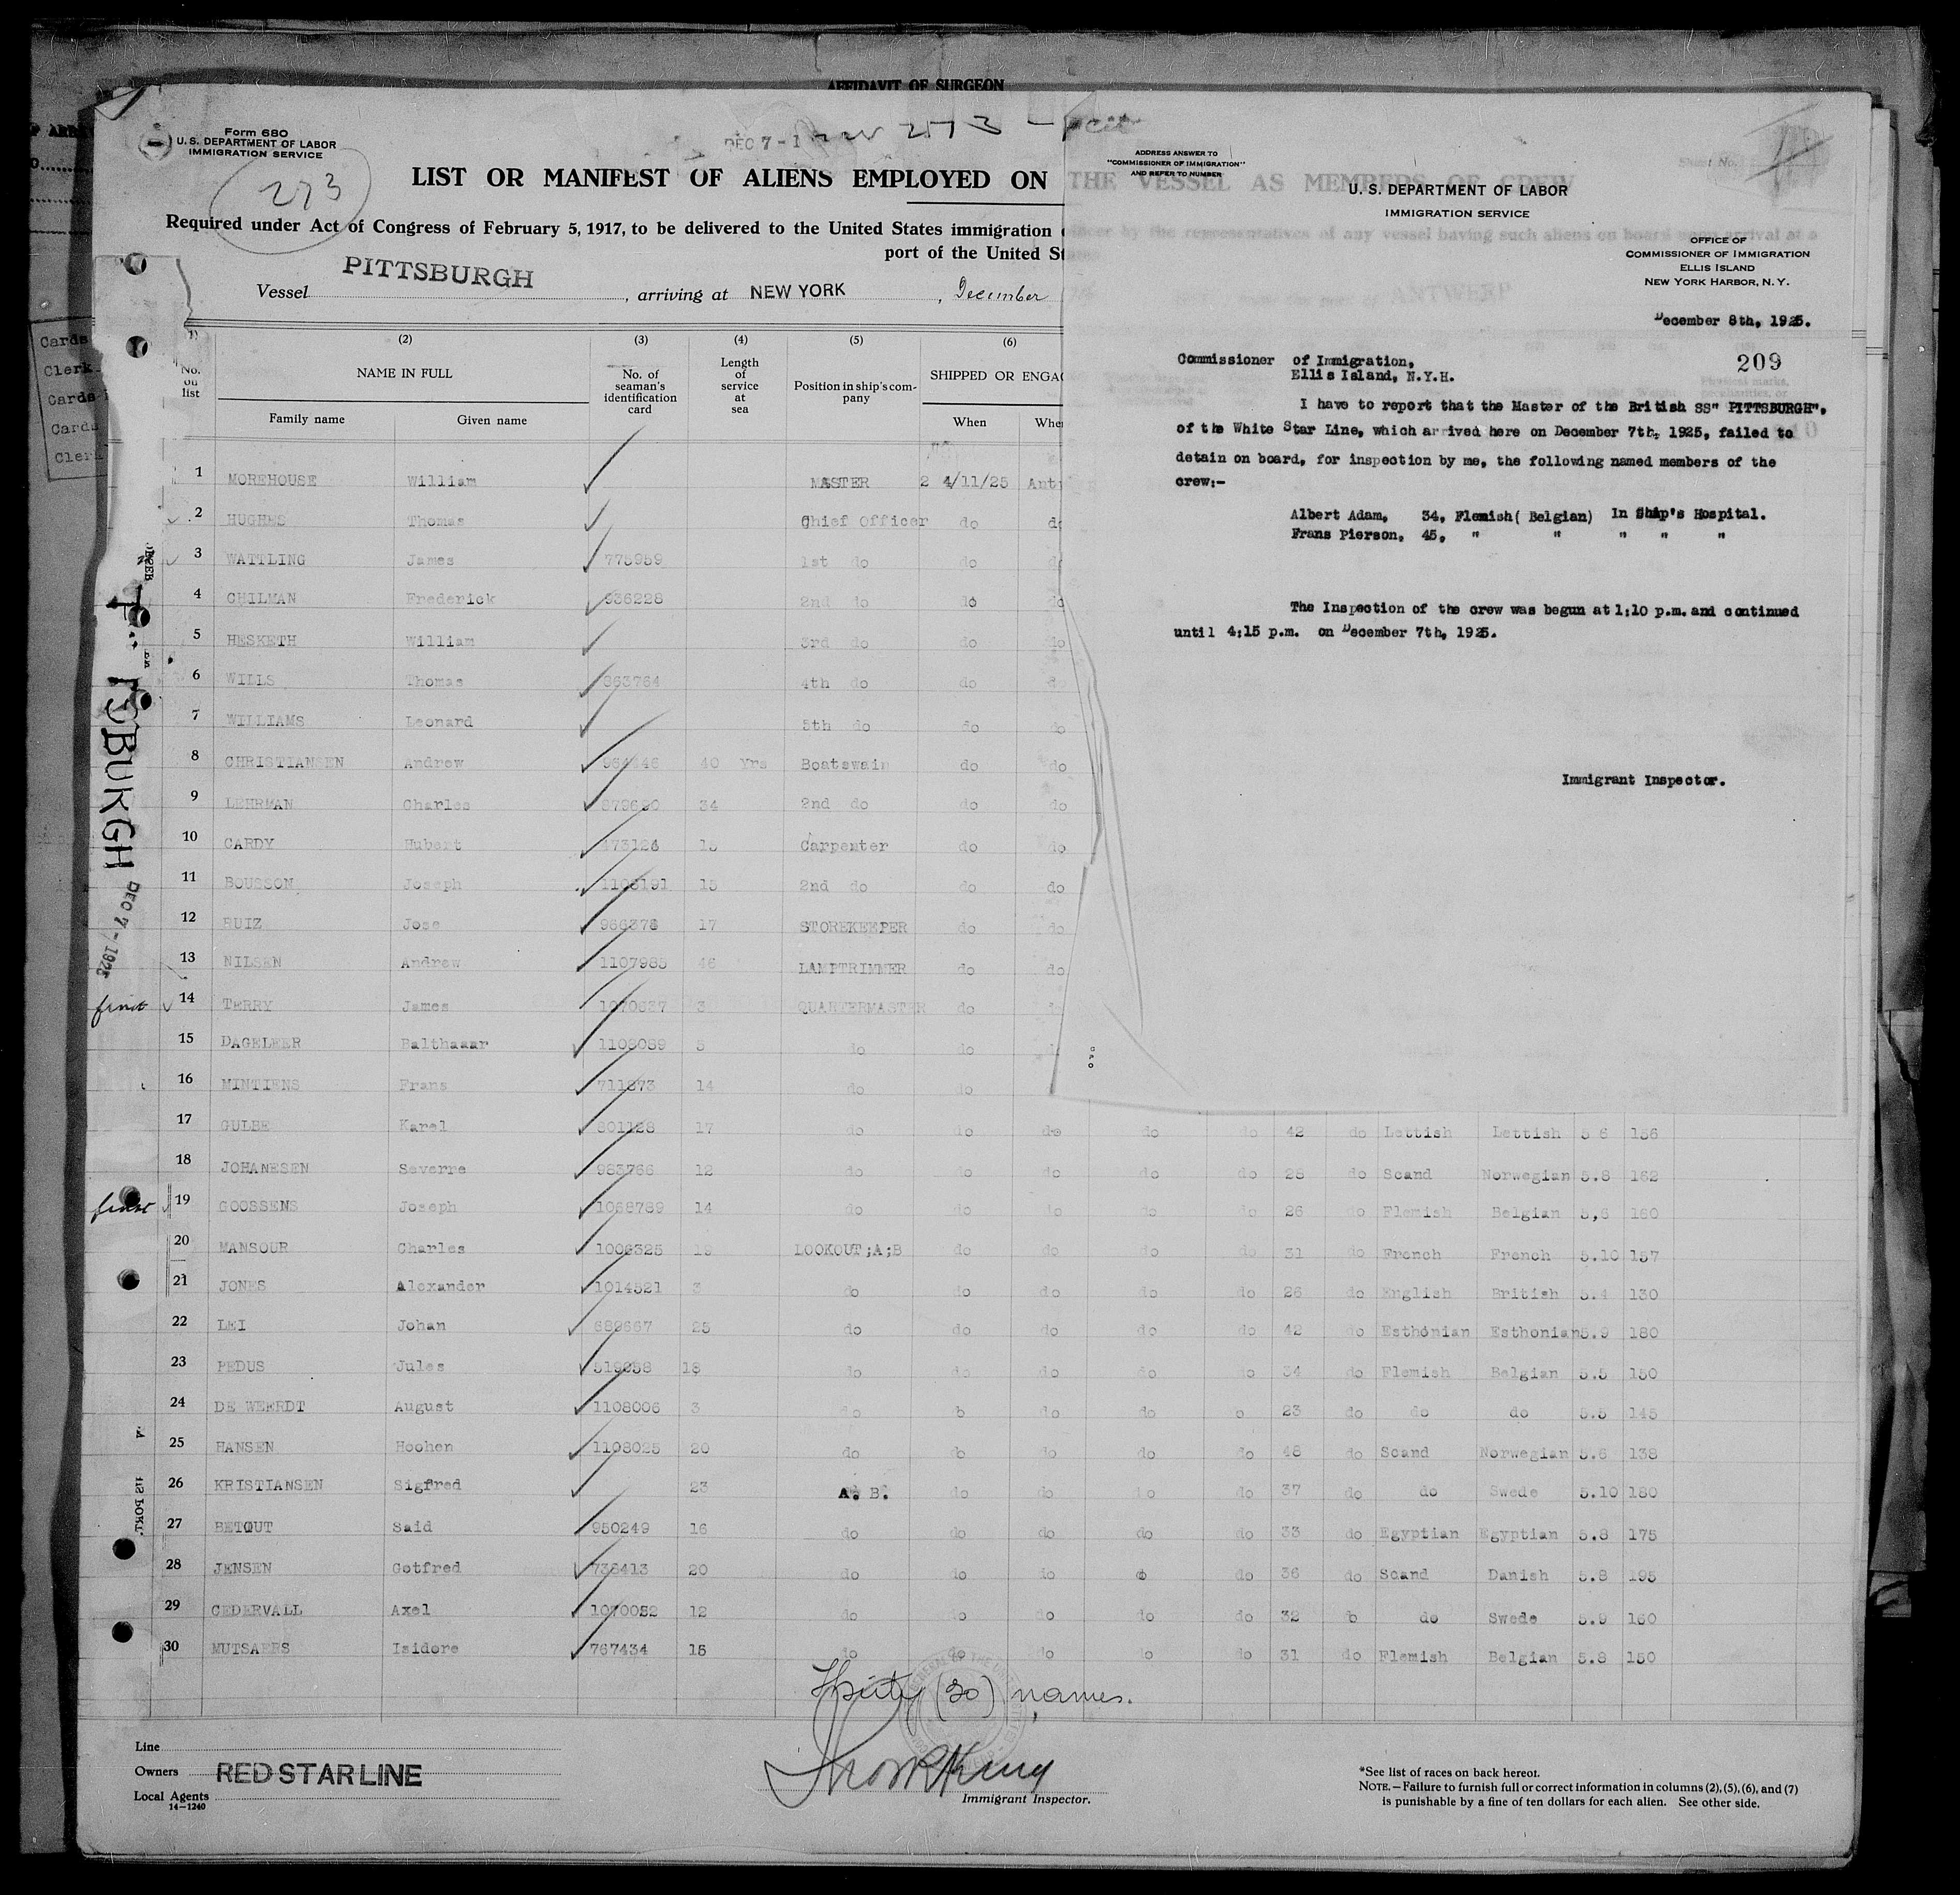 AFFIDAVIT OF SURGEON
Form 680
U. S. DEPARTMENT OF LABOR
IMMIGRATION SERVICE
273
DEC 7 - 1
273
LIST OR MANIFEST OF ALIENS EMPLOYED ON THE VESSEL AS MEMBERS OF CREW
Required under Act of Congress of February 5, 1917, to be delivered to the United States immigration
port of the United St
Vessel PITTSBURGH, arriving at NEW YORK, December
ANTWERP
(2) (3) (4) (5) (6)
No. on list
NAME IN FULL
Family name Given name
No. of seaman's identification card
Length of service at sea
Position in ship's company
SHIPPED OR ENGAG
When Whe
1 MOREHOUSE William MASTER 2 4/11/25 Ant
2 HUGHES Thomas Chief Officer do do
3 WATTLING James 775959 1st do do
4 CHILMAN Frederick 936228 2nd do do do
5 HESKETH William 3rd do do do
6 WILLS Thomas 963764 4th do do do
7 WILLIAMS Leonard 5th do do do
8 CHRISTIANSEN Andrew 40 Yrs Boatswain do do
9 LEHRMAN Charles 34 2nd do do do
10 CARDY Hubert Carpenter do do
11 BOUSSON Joseph 1108191 15 2nd do do do
12 RUIZ Jose 966376 17 STOREKEEPER do do
13 NILSEN Andrew 1107985 46 LAMPTRIMMER do do
14 TERRY James 3 QUARTERMASTER do
15 DAGELEER Balthaaar 1108089 5 do do
16 MINTIENS Frans 14 do do
17 GULBE Karel 801128 17 do do do do do 42 do Lettish Lettish 5 6 156
18 JOHANESEN Severre 983766 12 do do do do do 28 do Scand Norwegian 5.8 162
19 GOOSSENS Joseph 1068789 14 do do do do do 26 do Flemish Belgian 5,6 160
20 MANSOUR Charles 1006325 LOOKOUT;A;B do do do do 31 do French French 5.10 157
21 JONES Alexander 1014521 3 do do do do do 26 do English British 5.4 130
22 LEI Johan 689667 25 do do do do do 42 do Esthonian Esthonian 5.9 180
23 PEDUS Jules 519258 18 do do do do do 34 do Flemish Belgian 5.5 150
24 DE WEERDT August 1108006 3 do o do do o 23 do do do 5.5 145
25 HANSEN Hoohen 1108025 20 do o do do do 48 do Scand Norwegian 5.6 138
26 KRISTIANSEN Sigfred 23 A. B. do do do do 37 do do Swede 5.10 180
27 BETOUT Said 950249 16 do do do do do 33 do Egyptian Egyptian 5.8 175
28 JENSEN Gotfred 738413 20 do do do do do 36 do Scand Danish 5.8 195
29 CEDERVALL Axel 1070052 12 do do do do do 32 do do Swede 5.9 160
30 MUTSAERS Isidore 767434 15 do do do do do 31 do Flemish Belgian 5.8 150
Thirty (30) names.
Line
Owners RED STAR LINE
Local Agents
14—1240
Immigrant Inspector.
*See list of races on back hereof.
NOTE.—Failure to furnish full or correct information in columns (2), (5), (6), and (7)
is punishable by a fine of ten dollars for each alien. See other side.
ADDRESS ANSWER TO
"COMMISSIONER OF IMMIGRATION"
AND REFER TO NUMBER
U. S. DEPARTMENT OF LABOR
IMMIGRATION SERVICE
OFFICE OF
COMMISSIONER OF IMMIGRATION
ELLIS ISLAND
NEW YORK HARBOR, N. Y.
December 8th, 1925.
209
Commissioner of Immigration,
Ellis Island, N.Y.H.
I have to report that the Master of the British SS" PITTSBURGH",
of the White Star Line, which arrived here on December 7th, 1925, failed to
detain on board, for inspection by me, the following named members of the
crew:-
Albert Adam, 34, Flemish( Belgian) In Ship's Hospital.
Frans Pierson, 45, " " " " "
The Inspection of the crew was begun at 1;10 p.m. and continued
until 4;15 p.m. on December 7th, 1925.
Immigrant Inspector.
Cards
Clerk
Cards
Cards
Cler
DEC 7 - 1925